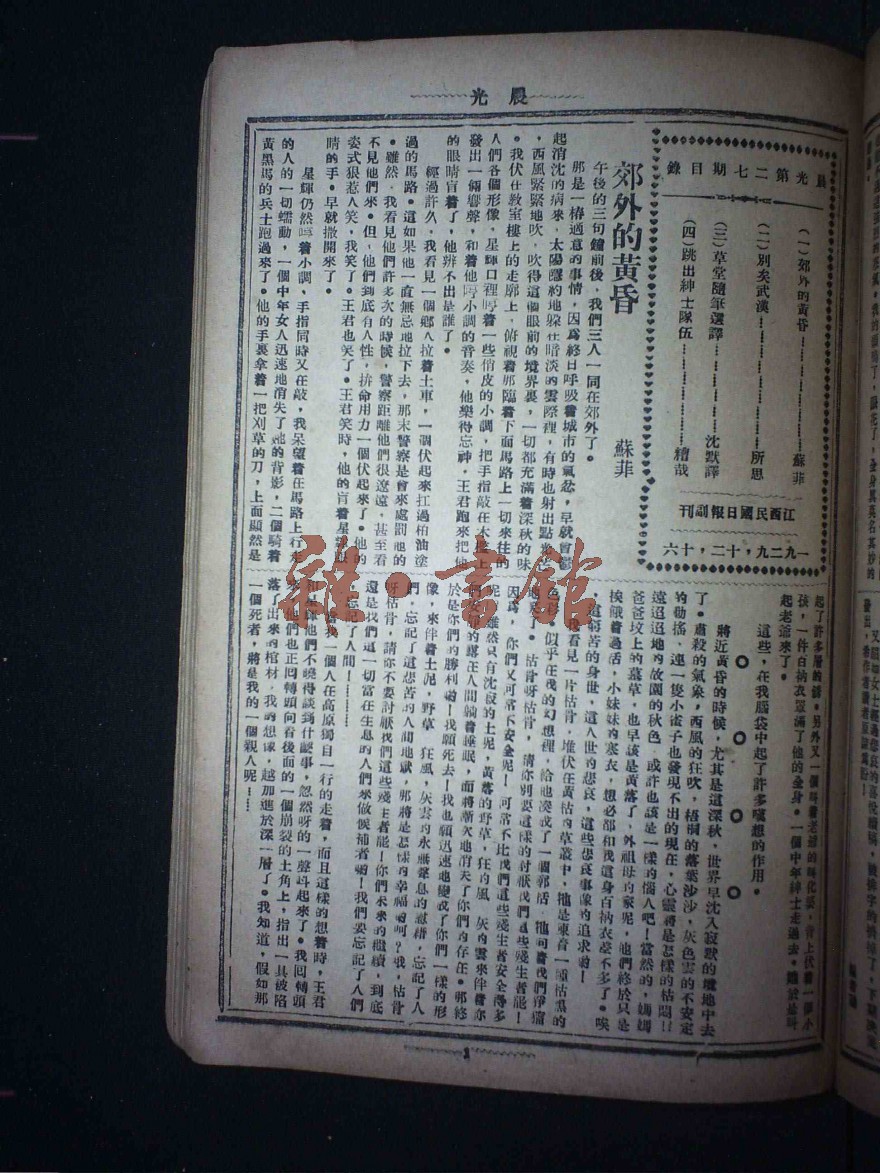 晨光
晨光第二七期目錄
(一)郊外的黃昏…………蘇菲
(二)別矣武漢…………所思
(三)草堂隨筆選譯…………沈默譯
(四)跳出紳士隊伍…………糟哉
江西民國日報副刊
一九二九,十二,十六
郊外的黃昏
蘇菲
午後的三句鐘前後,我們三人一同在郊外了。
那是一樁適意的事情,因為終日呼吸着城市的氣忿,早就會鬱
起消沈的病來,太陽隱約地躲在暗淡的雲際裡,有時也射出點光芒
,西風緊緊地吹,吹得這個眼前的境界裏,一切都充滿着深秋的味
。我伏在教室樓上的走廊上,俯視着那臨着下面馬路上一切來往的
人們各個形像,星輝口裡哼着一些俏皮的小調,把手指敲在木欄上
發出一陣響聲,和着他哼小調的音奏,他樂得忘神,王君跑來把他
的眼睛盲着了,他辨不出是誰了。
經過許久,我看見一個鄉人拉着土車,一個伏起來扛過柏油塗
過的馬路。這如果他一直無忌地拉下去,那末警察是會來處罰他的
。雖然,我看見他們許多次的時候,警察距離他們很遼遠,甚至看
不見他們來。但,他們到底有人性,拚命用力一個伏起來了。他的
姿式狠惹人笑,我笑了。王君也笑了。王君笑時,他的盲着星輝眼
睛的手,早就撒開來了。
星輝仍然哼着小調,手指同時又在敲,我呆望着在馬路上行走
的人的一切蠕動,一個中年女人迅速地消失了她的背影,二個騎着
黃黑馬的兵士跑過來了。他的手裏拿着一把刈草的刀,上面顯然是
起了許多層的銹。另外又一個叫着老爺的時化婆,背上伏着一個小
孩,一件百衲衣罩滿了他的全身。一個中年紳士走過去,
起老爺來了。
這些,在我腦袋中起了許多噓想的作用。
將近黃昏的時候,尤其是這深秋,世界早沈入寂默的墳地中去
了。肅殺的氣象,西風的狂吹,梧桐的落葉沙沙,灰色雲的不安定
的動搖,連一隻小雀子也發現不出的現在,心靈將是怎樣的枯悶!
遠迢迢地的故園的秋色,或許也該是一樣的惱人吧!當然的,媽媽
爸爸坟上的墓草,也早該是黃落了,外祖母的家呢,他們終於只是
挨餓着過活,小妹妹的寒衣,想必都和我這身百衲衣差不多了。唉
這窮苦的身世,這人世的悲哀,這些悲哀事像的追求喲!
我看見一片枯骨,堆伏在黃枯的草叢中,牠是東着一種枯黑的
色彩,似乎在我的幻想裡,給他湊成了一個郭活,牠向着我們淨痛
地 枯骨呀枯骨,請你別要這樣的討厭我們這些殘生者罷!
因為,你們又可常不安全呢!何常不比我們這些殘生者安全得多
呢,雖然只有沈寂的土泥,黃落的野草,狂的風,灰的雲來伴着你
們 露在人間躺着睡眠,而將漸次地消失了你們的存在。那終
於是你們的勝利喲!我願死去!我也願迅速地變成了你們一樣的形
像,來伴着土泥,野草,狂風,灰雲的永無聲息的慰藉,忘記了人
們,忘記了這悲苦的人間地獄,那將是怎樣的幸福喲呵?我,枯骨
呀枯骨,請你不要討厭我們這些殘生者罷!你們未來的繼續,到底
還是我們這一切當在生息的人們來做候補者喲!我們要忘記了人們
,忘記了人間!…………
當我一個人在高原獨目一行的走着,而且這樣的想着時,王君
和星輝他們不曉得談到什麼事,忽然呀的一聲抖起來了。我回轉頭
來,他們也正回轉頭向着後面的一個崩裂的土角上,指出一具被陷
落了出來的棺材,我的想像,越加進於深一層了。我知道,假如那
一個死者,將是我的一個親人呢!……
1
雜·書館